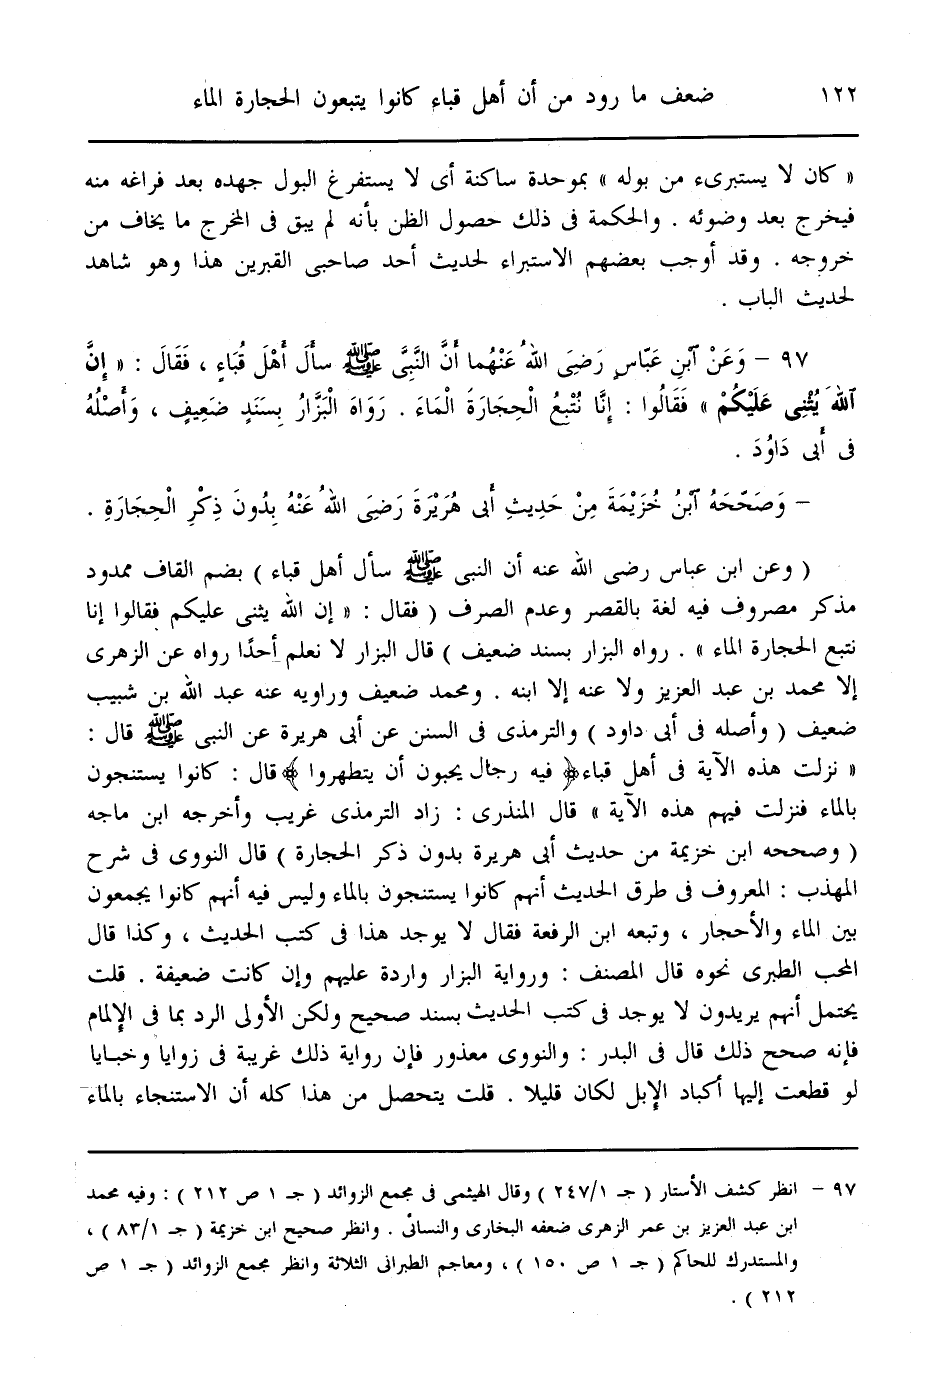 ١٢٢ ضعف ما رود من أن أهل قباء كانوا يتبعون الحجارة الماء
« كان لا يستبرىء من بوله » بموحدة ساكنة أى لا يستفرغ البول جهده بعد فراغه منه
فيخرج بعد وضوئه . والحكمة فى ذلك حصول الظن بأنه لم يبق فى المخرج ما يخاف من
خروجه . وقد أوجب بعضهم الاستبراء لحديث أحد صاحبى القبرين هذا وهو شاهد
لحديث الباب .
٩٧ – وَعَنْ ٱبنِ عَبّاسٍ رَضِىَ اللهُ عَنْهُما أَنَّ النَّبِىَّ ﷺ سأَلَ أَهْلَ قُبَاءٍ ، فَقَالَ : « إِنَّ
ٱللهَ يُثْنِى عَلَيْكُمْ » فَقَالُوا : إِنَّا نُتْبِعُ الْحِجَارَةَ الْمَاءَ . رَوَاهُ الْبَزَّارُ بِسَنَدٍ ضَعِيفٍ ، وَأَصْلُهُ
فى أَبى دَاوُدَ .
– وَصَحّحَهُ ٱبْنُ خُزَيْمَةَ مِنْ حَدِيثِ أَبى هُرَيْرَةَ رَضِىَ اللهُ عَنْهُ بِدُونَ ذِكْرِ الْحِجَارَةِ .
( وعن ابن عباس رضى الله عنه أن النبى ﷺ سأل أهل قباء ) بضم القاف ممدود
مذكر مصروف فيه لغة بالقصر وعدم الصرف ( فقال : « إن الله يثنى عليكم فقالوا إنا
نتبع الحجارة الماء » . رواه البزار بسند ضعيف ) قال البزار لا نعلم أحدًا رواه عن الزهرى
إلا محمد بن عبد العزيز ولا عنه إلا ابنه . ومحمد ضعيف وراويه عنه عبد الله بن شبيب
ضعيف ( وأصله فى أبى داود ) والترمذى فى السنن عن أبى هريرة عن النبى ﷺ قال :
« نزلت هذه الآية فى أهل قباء ﴿ فيه رجال يحبون أن يتطهروا ﴾ قال : كانوا يستنجون
بالماء فنزلت فيهم هذه الآية » قال المنذرى : زاد الترمذى غريب وأخرجه ابن ماجه
( وصححه ابن خزيمة من حديث أبى هريرة بدون ذكر الحجارة ) قال النووى فى شرح
المهذب : المعروف فى طرق الحديث أنهم كانوا يستنجون بالماء وليس فيه أنهم كانوا يجمعون
بين الماء والأحجار ، وتبعه ابن الرفعة فقال لا يوجد هذا فى كتب الحديث ، وكذا قال
المحب الطبرى نحوه قال المصنف : ورواية البزار واردة عليهم وإن كانت ضعيفة . قلت
يحتمل أنهم يريدون لا يوجد فى كتب الحديث بسند صحيح ولكن الأولى الرد بما فى الإلمام
فإنه صحح ذلك قال فى البدر : والنووى معذور فإن رواية ذلك غريبة فى زوايا وخبايا
لو قطعت إليها أكباد الإبل لكان قليلا . قلت يتحصل من هذا كله أن الاستنجاء بالماء
٩٧ – انظر كشف الأستار ( جـ ٢٤٧/١ ) وقال الهيثمى فى مجمع الزوائد ( جـ ١ ص ٢١٢ ) : وفيه محمد
ابن عبد العزيز بن عمر الزهرى ضعفه البخارى والنسائى . وانظر صحيح ابن خزيمة ( جـ ٨٣/١ ) ،
والمستدرك للحاكم ( جـ ١ ص ١٥٠ ) ، ومعاجم الطبرانى الثلاثة وانظر مجمع الزوائد ( جـ ١ ص
٢١٢ ) .